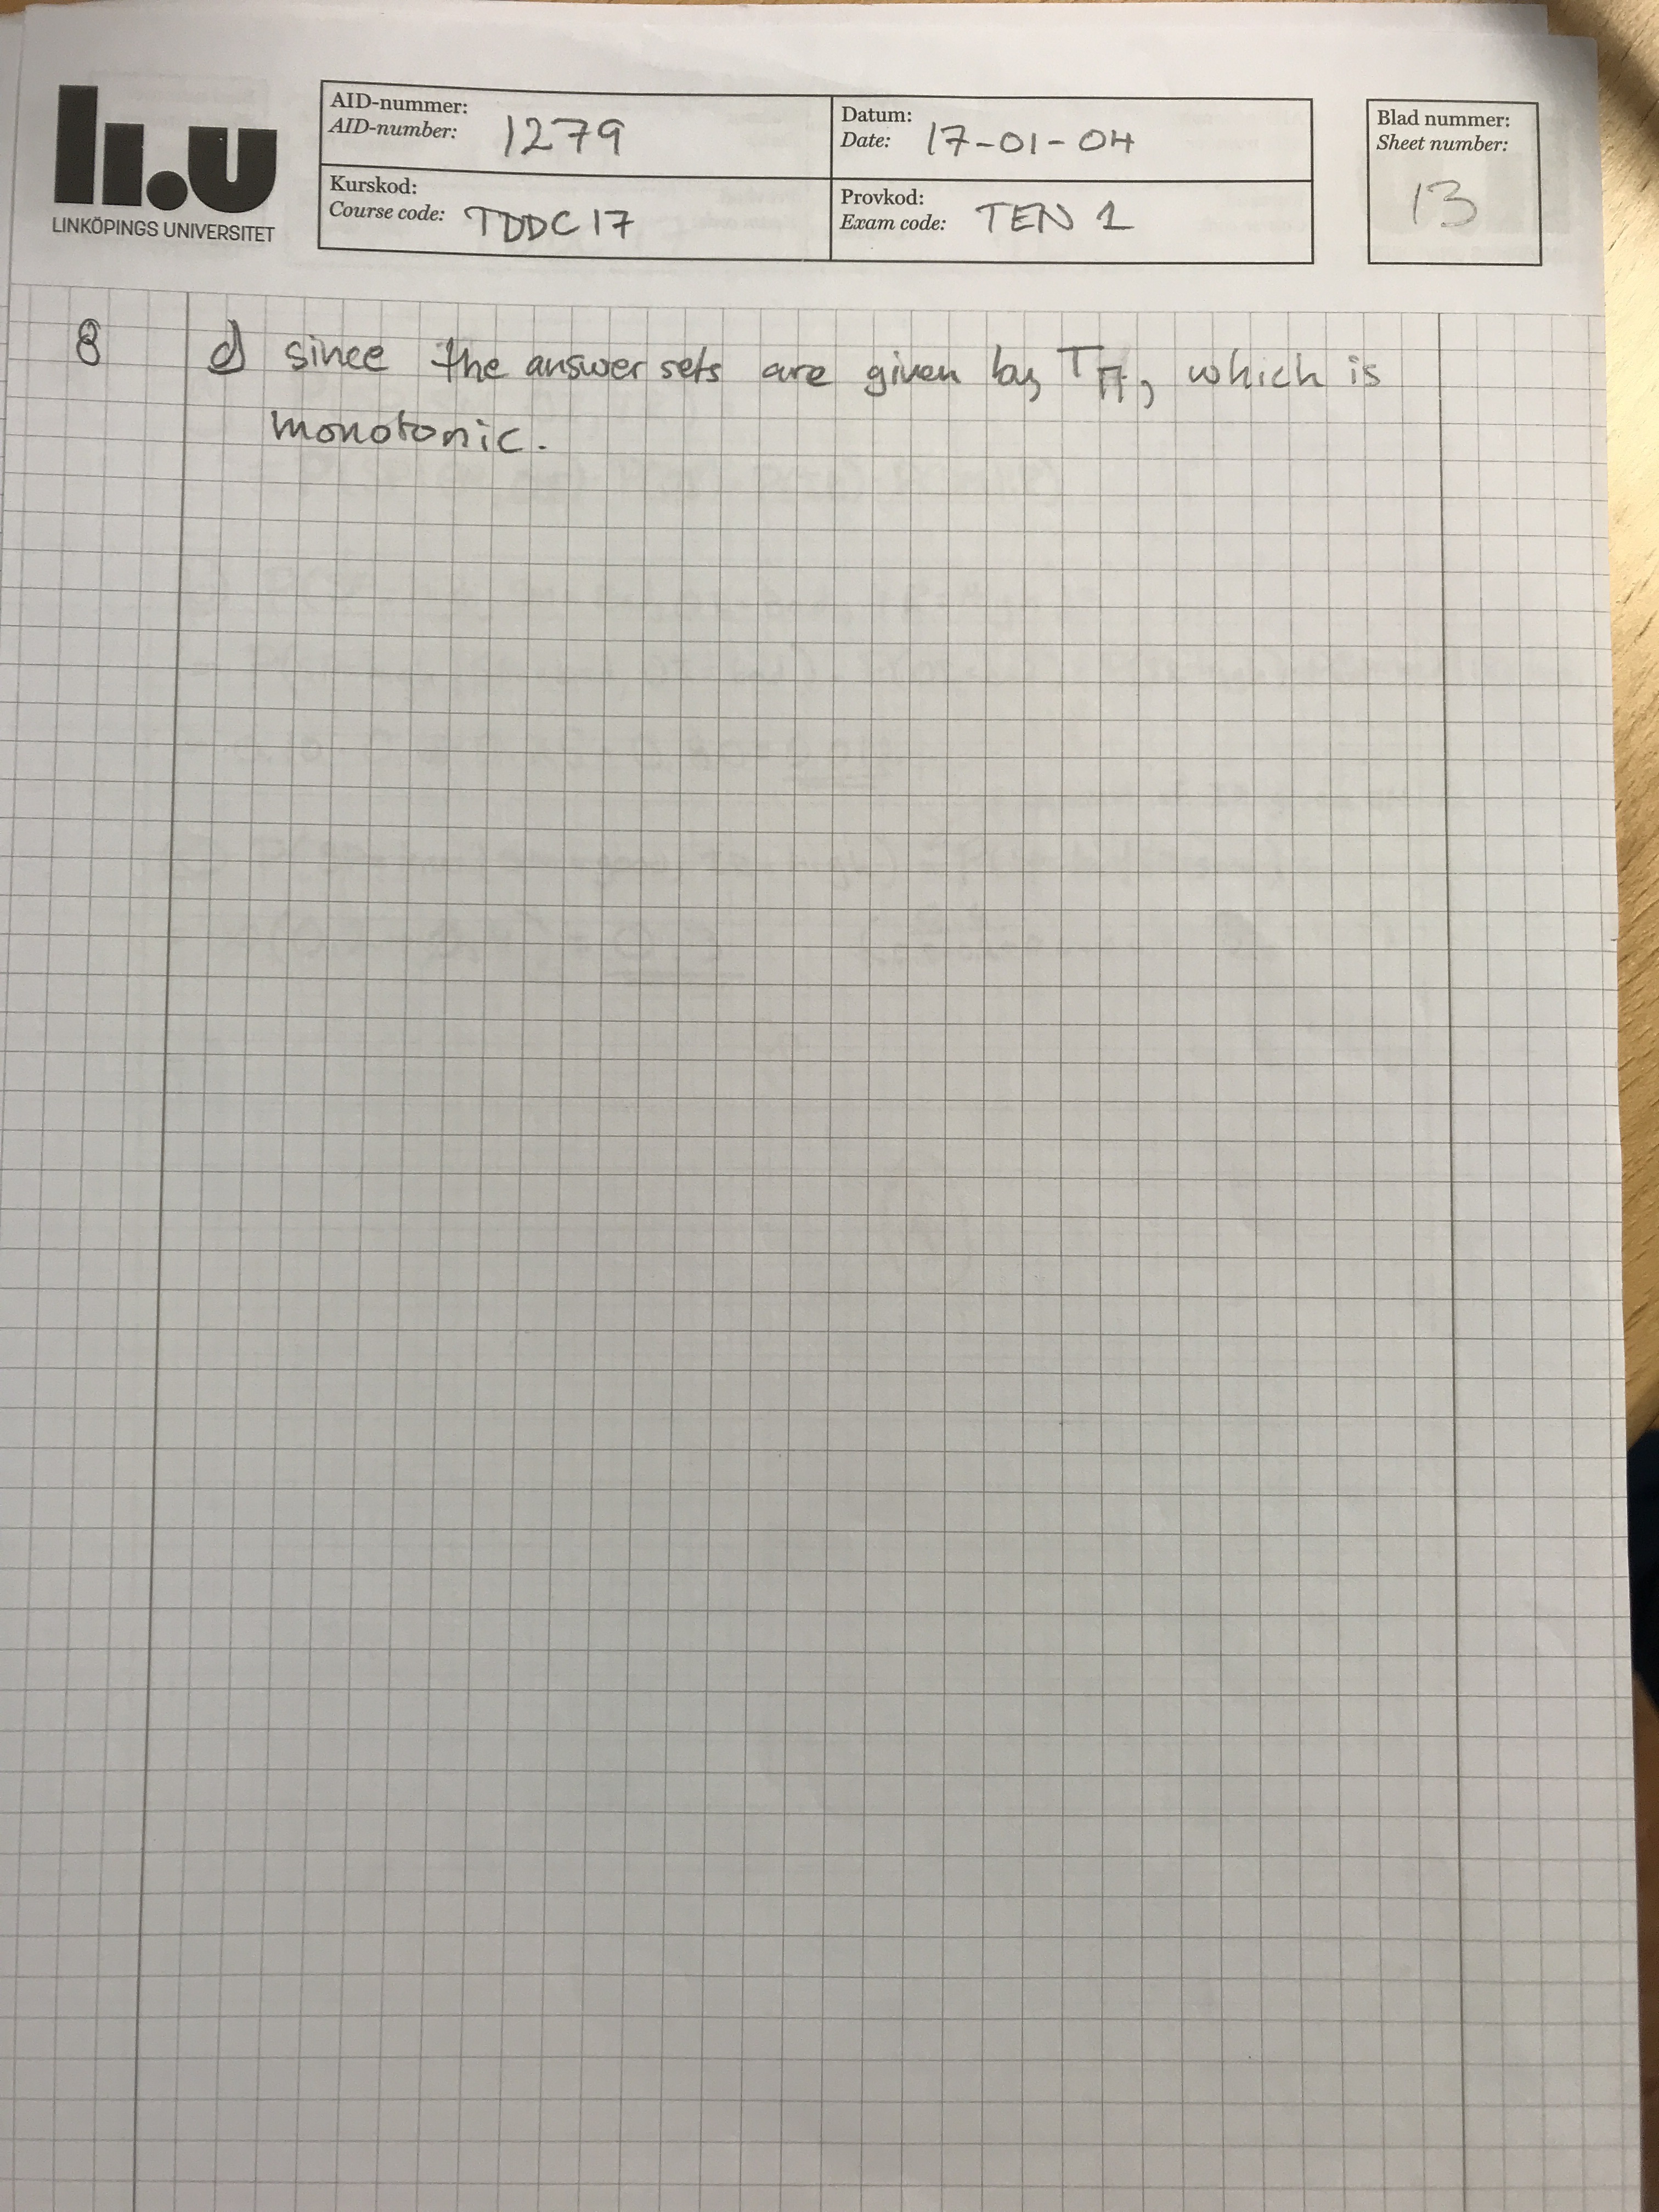 LiU
LINKÖPINGS UNIVERSITET
AID-nummer:
AID-number: 1279
Datum:
Date: 17-01-04
Kurskod:
Course code: TDDC17
Provkod:
Exam code: TEN 1
Blad nummer:
Sheet number:
13
8 d) since the answer sets are given by TΠ, which is
monotonic.